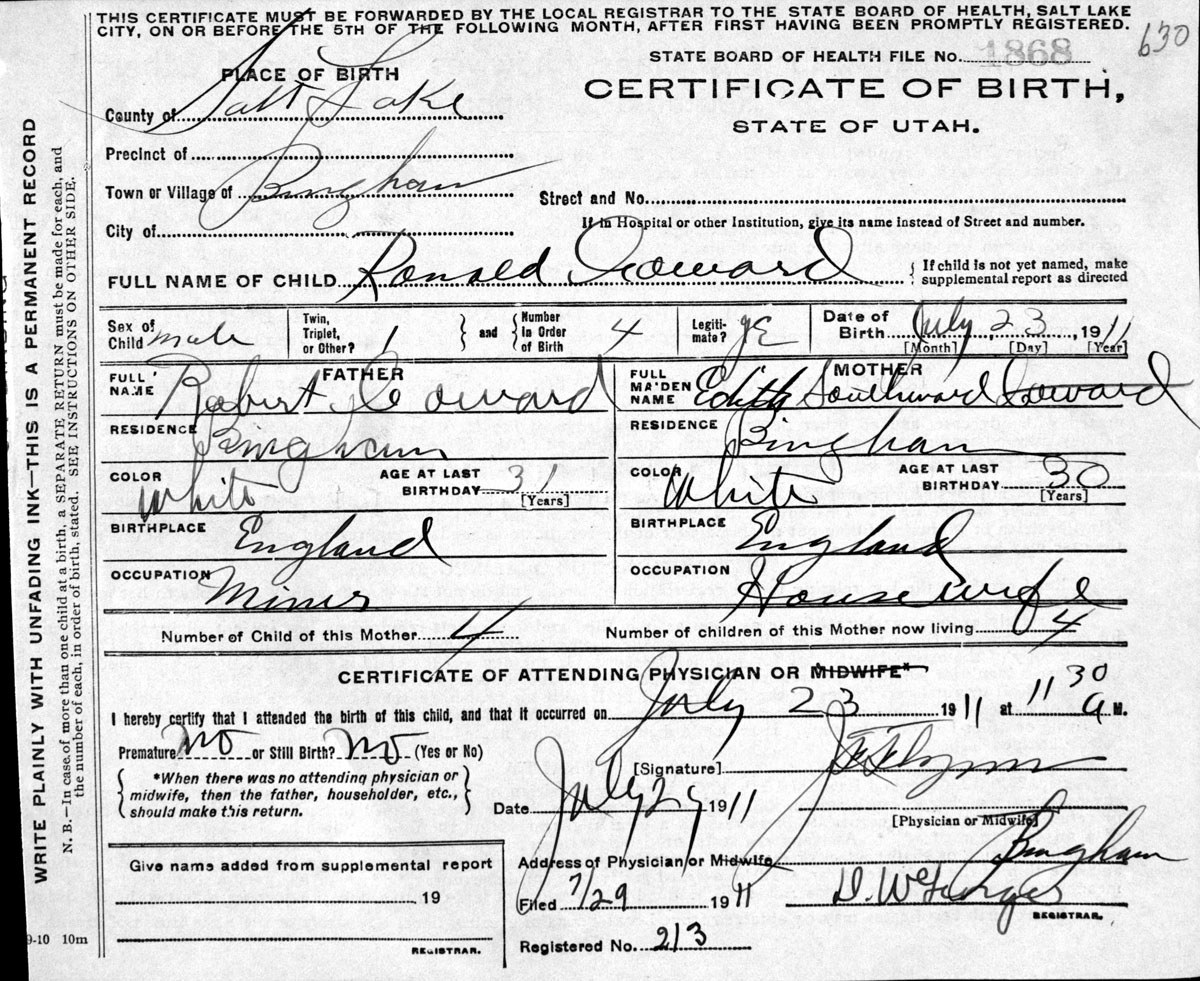 THIS CERTIFICATE MUST BE FORWARDED BY THE LOCAL REGISTRAR TO THE STATE BOARD OF HEALTH, SALT LAKE
CITY, ON OR BEFORE THE 5TH OF THE FOLLOWING MONTH, AFTER FIRST HAVING BEEN PROMPTLY REGISTERED.
630
STATE BOARD OF HEALTH FILE No. 1868
CERTIFICATE OF BIRTH,
STATE OF UTAH.
PLACE OF BIRTH
County of Salt Lake
Precinct of
Town or Village of Bingham
City of
Street and No.
If in Hospital or other Institution, give its name instead of Street and number.
FULL NAME OF CHILD Ronald Coward
{ If child is not yet named, make
supplemental report as directed
Sex of Child male
Twin, Triplet, or Other? 1 } and { Number in Order of Birth 4
Legitimate? yE
Date of Birth July 23, 1911
[Month] [Day] [Year]
FATHER
FULL NAME Robert Coward
RESIDENCE Bingham
COLOR White AGE AT LAST BIRTHDAY 31 [Years]
BIRTHPLACE England
OCCUPATION Miner
MOTHER
FULL MAIDEN NAME Edith Southward Coward
RESIDENCE Bingham
COLOR White AGE AT LAST BIRTHDAY 30 [Years]
BIRTHPLACE England
OCCUPATION Housewife
Number of Child of this Mother 4 Number of children of this Mother now living 4
CERTIFICATE OF ATTENDING PHYSICIAN OR MIDWIFE*
I hereby certify that I attended the birth of this child, and that it occurred on July 23 1911 at 11 30 A M.
Premature No or Still Birth? No (Yes or No)
{ *When there was no attending physician or
midwife, then the father, householder, etc.,
should make this return. }
[Signature]
Date July 29 1911
[Physician or Midwife]
Give name added from supplemental report
19
REGISTRAR.
Address of Physician or Midwife Bingham
Filed 7/29 1911
REGISTRAR.
Registered No. 213
9-10 10m
WRITE PLAINLY WITH UNFADING INK—THIS IS A PERMANENT RECORD
N. B.—In case of more than one child at a birth, a SEPARATE RETURN must be made for each, and
the number of each, in order of birth, stated. SEE INSTRUCTIONS ON OTHER SIDE.